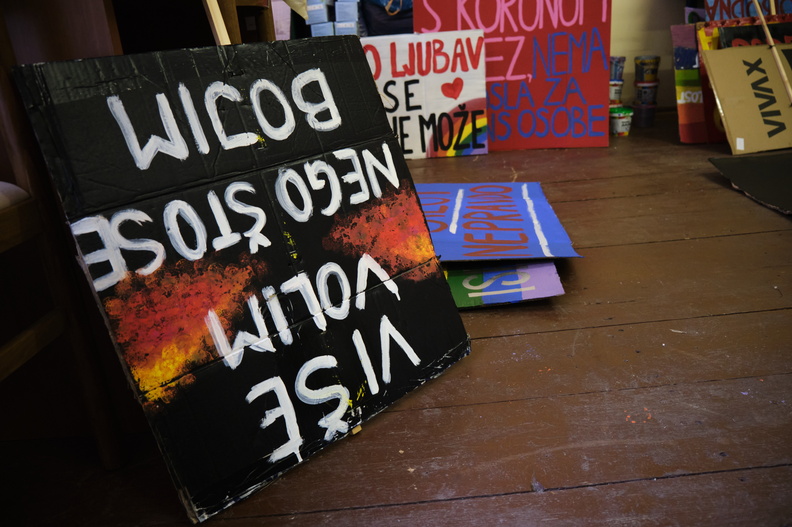 VIŠE
VOLIM
NEGO ŠTO SE
BOJIM
O LJUBAV
SE
NE MOŽE
S KORONOM
EZ, NEMA
SLA ZA
IS OSOBE
NEPRAVDO
IS
VIVAX